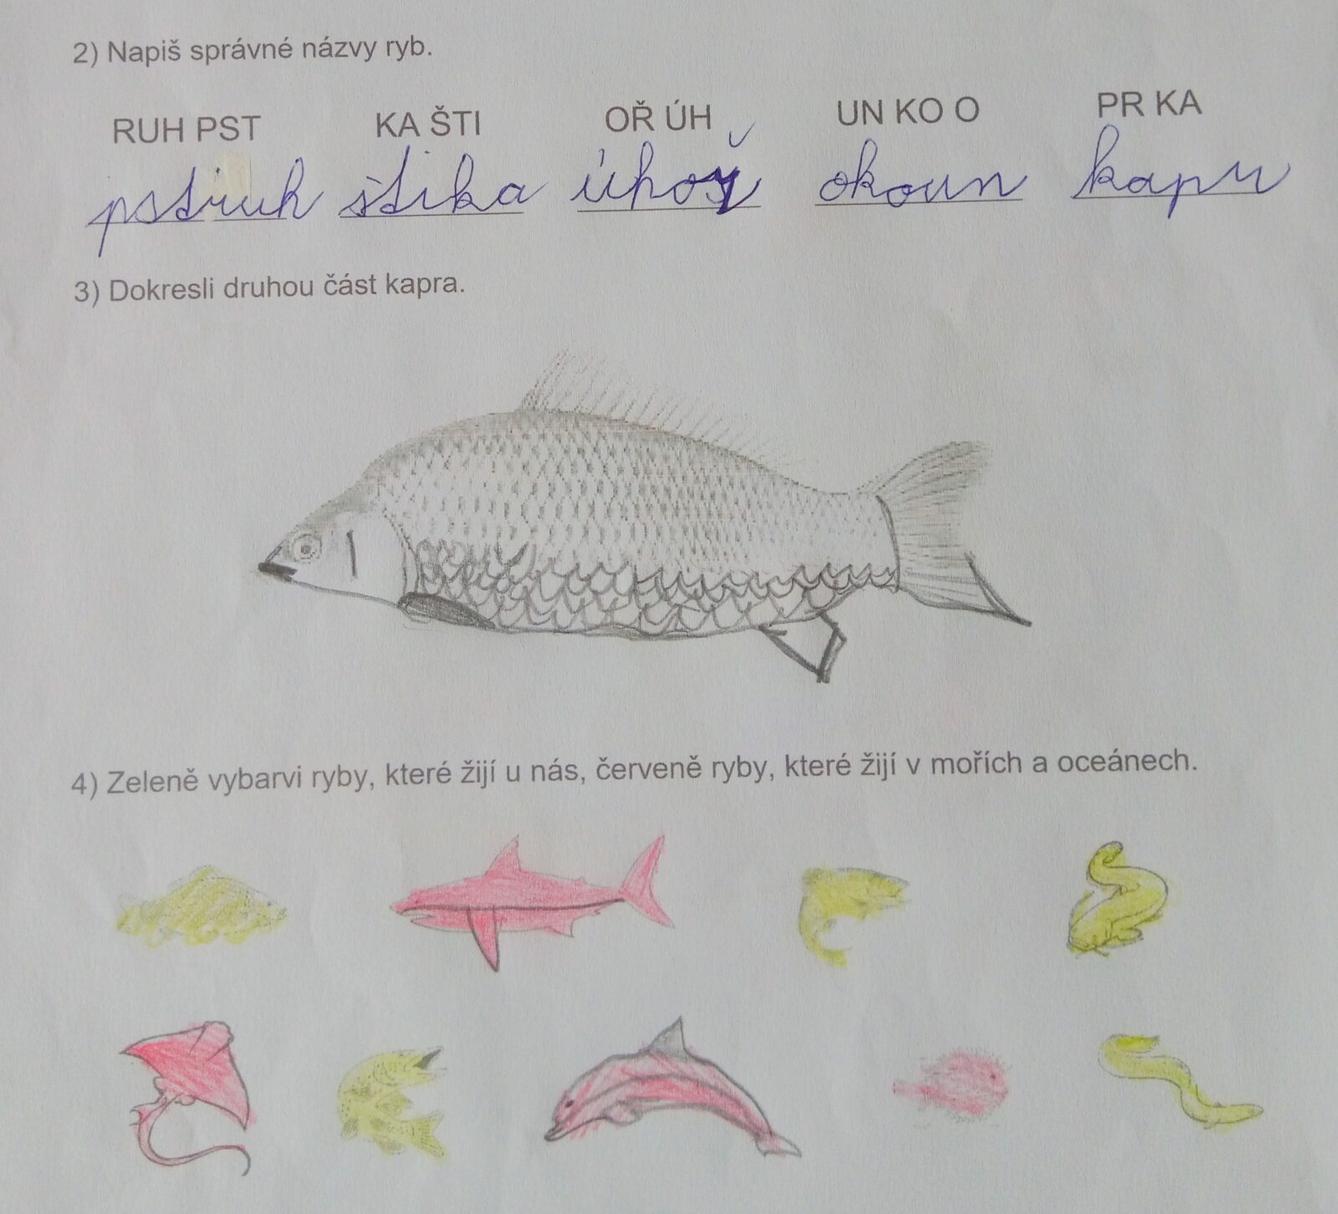 2) Napiš správné názvy ryb.
RUH PST KA ŠTI OŘ ÚH UN KO O PR KA
pstruh štika úhoř okoun kapr
3) Dokresli druhou část kapra.
4) Zeleně vybarvi ryby, které žijí u nás, červeně ryby, které žijí v mořích a oceánech.